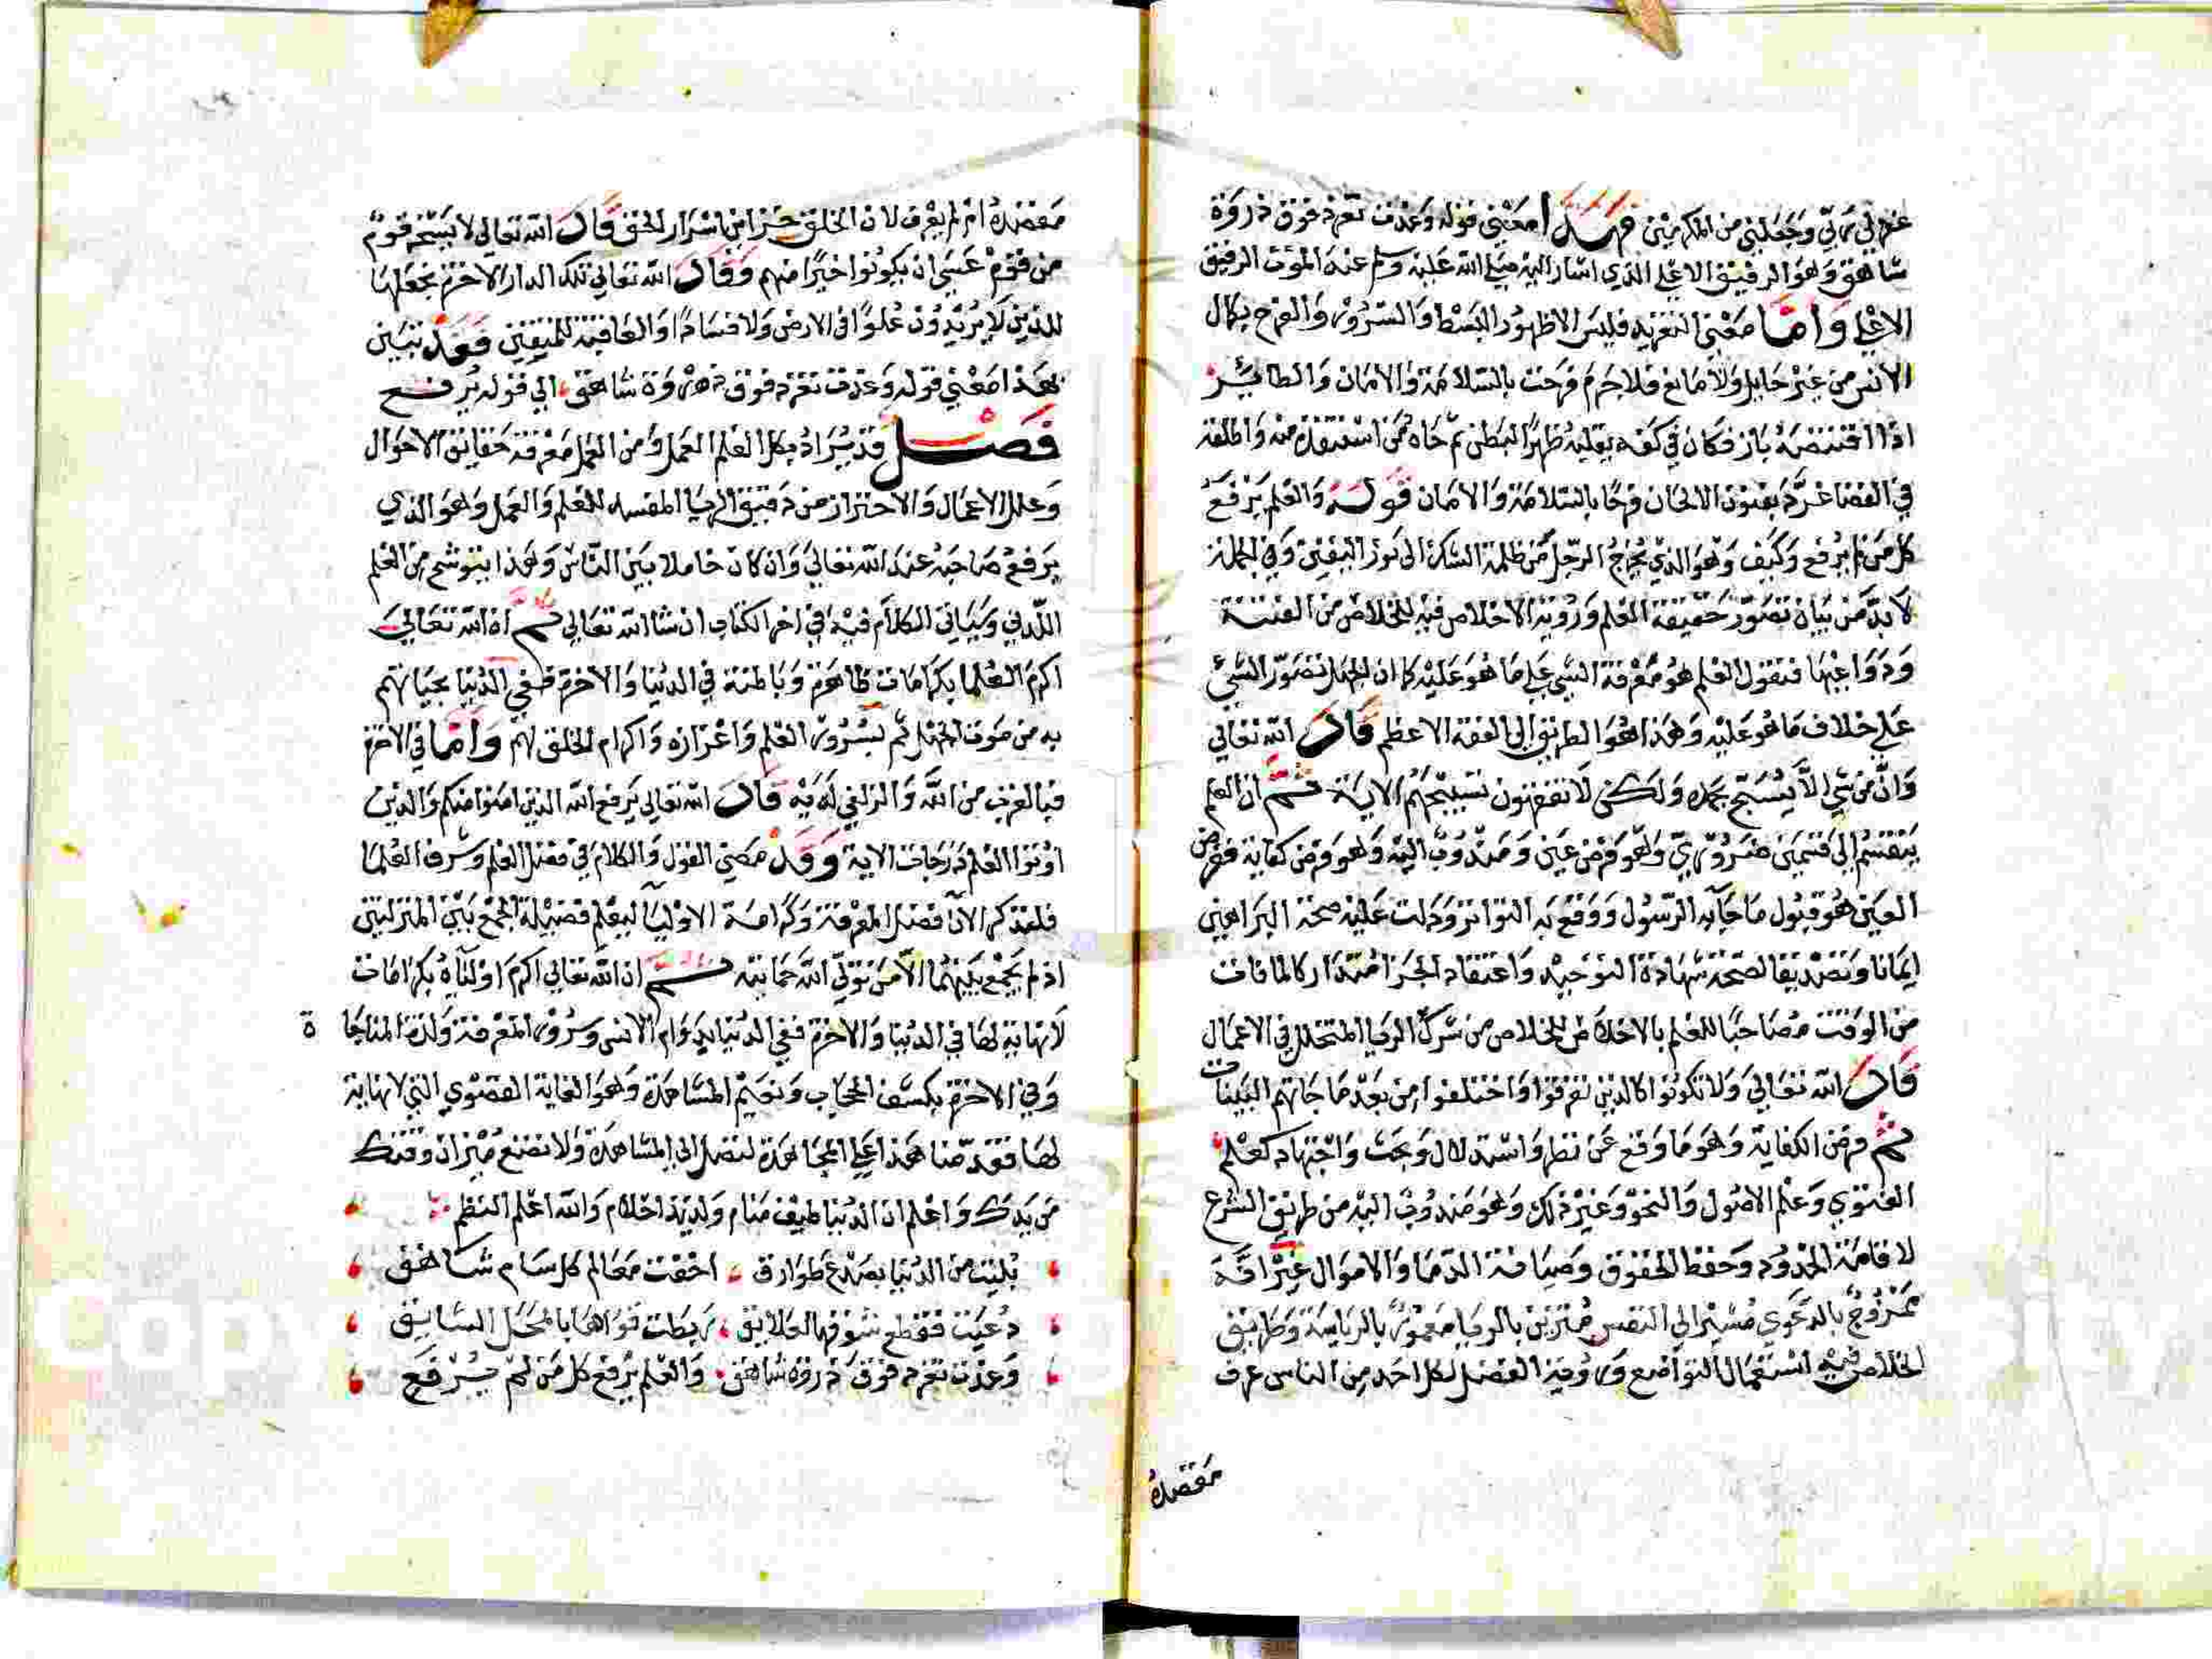 غفر لي ربي وجعلني من المكرمين فهذا معني قوله وغدت تغرد فوق ذروة
شاهق وهو الرفيق الاعلي الذي اشار اليه صلي الله عليه وسلم عند الموت الرفيق
الاعلي واما معني التغريد فليس الا ظهور البسط والسرور والفرح بكمال
الانس من غير حايل ولا مانع فلا جرم فرحت بالسلامة والامان والطائر
اذا اقتنصه باز فكان في كفه يقلبه ظهرا لبطن ثم جاه من استنقذه منه واطلقه
في الفضا غرد بفنون الالحان فرحا بالسلامة والامان قوله والعلم يرفع
كل من لم يرفع وكيف وهو الذي يخرج الرجل من ظلمة الشك الى نور اليقين وفي الجملة
لا بد من بيان تصور حقيقة العلم ورؤية الاخلاص فيه للخلاص من الفتنة
ودواعيها فنقول العلم هو معرفة الشي علي ما هو عليه كما ان الجهل تصور الشي
علي خلاف ما هو عليه وهذا هو الطريق الي الفقه الاعظم قال الله تعالي
وان من شي الا يسبح بحمده ولكن لا تفقهون تسبيحهم الاية ثم ان العلم
ينقسم الي قسمين ضروري وهو فرض عين ومندوب اليه وهو فرض كفاية ففرض
العين هو قبول ما جآ به الرسول ووقع به التواتر ودلت عليه صحة البراهين
ايمانا وتصديقا لصحة شهادة التوحيد واعتقاد الجزا متداركا لما فات
من الوقت مصاحبا للعلم بالاخلاص للخلاص من شرك الريا المتخلل في الاعمال
قال الله تعالي ولا تكونوا كالذين تفرقوا واختلفوا من بعد ما جاتهم البينات
ثم فرض الكفاية وهو ما وقع عن نظر واستدلال وبحث واجتهاد كعلم
الفتوي وعلم الاصول والنحو وغير ذلك وهو مندوب اليه من طريق الشرع
لاقامة الحدود وحفظ الحقوق وصيانة الدما والاموال غير انه
ممزوج بالدعوي مشير الي النفس مقترن بالريا معمور بالرياسة وطريق
الخلاص فيه استعمال التواضع ورؤية الفضل لكل احد من الناس عرف
مقصده
مقصده ام لم يعرف لان الخلق جزا من اسرار الحق قال الله تعالي لا يسخر قوم
من قوم عسي ان يكونوا خيرا منهم وقال الله تعالي تلك الدار الاخرة نجعلها
للذين لا يريدون علوا في الارض ولا فسادا والعاقبة للمتقين فقد تبين
بهذا معني قوله وغدت تغرد فوق ذروة شاهق الي قوله يرفع
فصل قد يراد بكل العلم العمل ومن العمل معرفة حقايق الاحوال
وعلل الاعمال والاحتراز من دقيق الريا المفسد للعلم والعمل وهو الذي
يرفع صاحبه عند الله تعالي وان كان خاملا بين الناس وهذا يتوشح من العلم
اللدني وسياتي الكلام فيه في اخر الكتاب ان شا الله تعالي ثم ان الله تعالي
اكرم العلما بكرامات ظاهرة وباطنة في الدنيا والاخرة ففي الدنيا بحياتهم
به من موت الجهل ثم بسرور العلم واعزازه واكرام الخلق لهم واما في الاخرة
فبالقرب من الله والزلفي لديه قال الله تعالي يرفع الله الذين امنوا منكم والذين
اوتوا العلم درجات الاية وقد مضي القول والكلام في فضل العلم وشرف العلما
فلنذكر الآن فضل المعرفة وكرامة الاوليآ ليعلم فضيلة الجمع بين المنزلتين
اذ لم يجمع بينهما الا من تولي الله حمايته ثم ان الله تعالي اكرم اوليآه بكرامات
لا نهاية لها في الدنيا والاخرة ففي الدنيا بدوام الانس وسرور المعرفة ولذة المناجا
ة
وفي الاخرة بكشف الحجاب ونعيم المشاهدة وهو الغاية القصوي التي لا نهاية
لها فقد منا هذا علي المجاهدة لتصل الي المشاهدة ولا تضع ميزان وقتك
من يدك واعلم ان الدنيا طيف منام ولذيذ احلام والله اعلم النظم
بليت من الدنيا بصدع طوارق اخفت معالم كل سام شاهق
دعيت فقطع شوقها العلايق ربطت قواها بالمحل السابق
وغدت تغرد فوق ذروة شاهق والعلم يرفع كل من لم يرفع